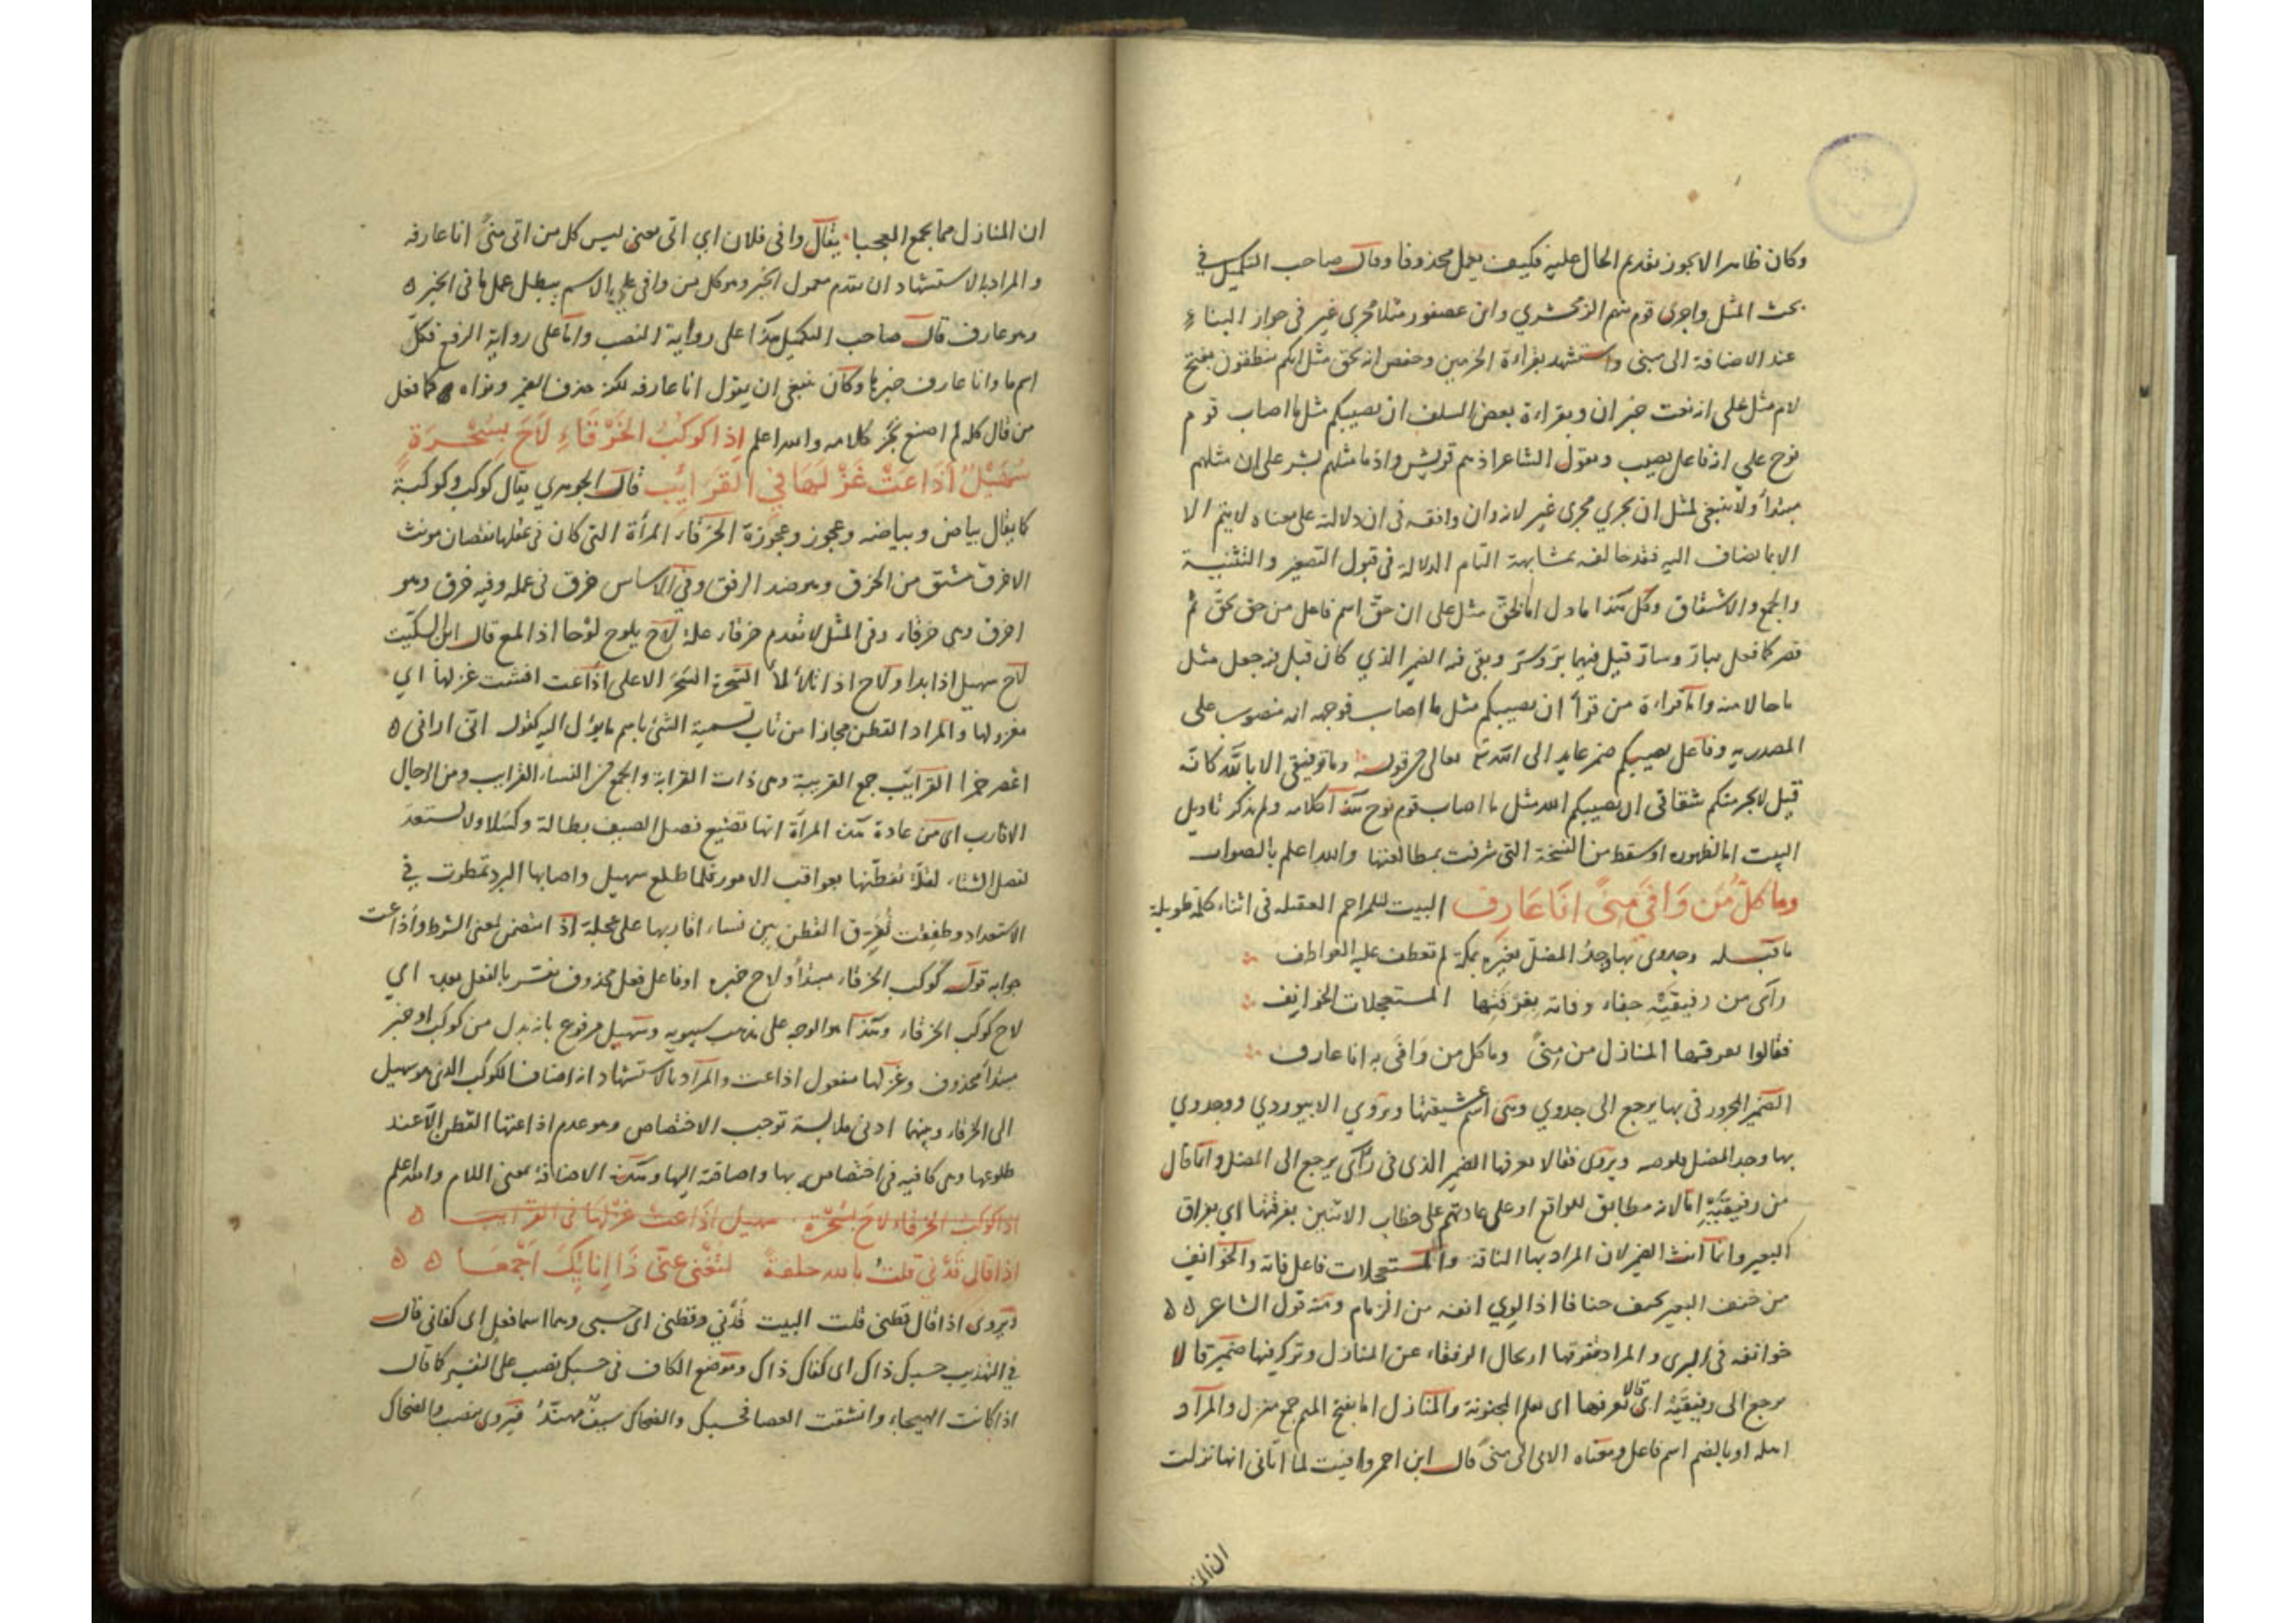 وكان ظاهرا لا يجوز تقديم الحال عليه فكيف يعمل محذوفا وقال صاحب التكميل في
بحث المثل واجرى قوم منهم الزمخشري وابن عصفور مثلا مجرى غير في جواز البناء
عند الاضافة الى مبنى واستشهد بقراءة الحرمين وحفص انه لحق مثل انكم تنطقون بفتح
لام مثل على انه نعت خبر ان وبقراءة بعض السلف ان يصيبكم مثل ما اصاب قوم
نوح على انه فاعل يصيب وبقول الشاعر اذ هم قريش واذ ما مثلهم بشر على ان مثلهم
مبتدأ ولا ينبغي لمثل ان يجري مجرى غير لانه وان وافقه في ان دلالته على معناه لا يتم الا
الا بما يضاف اليه فقد خالفه بمشابهة التام الدلالة في قبول التصغير والتثنية
والجمع والاشتقاق وكل هذا مادل اما لحق مثل على ان حق اسم فاعل من حق يحق ثم
قصر كما فعل ببار وسار قيل فيهما بر وسر وبقي فيه الضمير الذي كان قبل فجعل مثل
ما حالا منه واما قراءة من قرأ ان يصيبكم مثل ما اصاب فوجهه انه منصوب على
المصدرية وفاعل يصيبكم ضمير عايد الى الله تعالى في قوله وما توفيقي الا بالله كانه
قيل لا يجرمنكم شقاقي ان يصيبكم الله مثل ما اصاب قوم نوح هذا كلامه ولم يذكر تاويل
البيت اما لظهوره او سقط من النسخة التي شرفت بمطالعتها والله اعلم بالصواب
وما كل من وافى منى انا عارف البيت لمزاحم العقيلي في اثناء كلمة طويلة
ما قبله وجدوى بها وجد المضل بعيره بمكة لم تعطف عليه العواطف
رآى من رفيقيه جفاء وفاته بفرقتها المستعجلات الخوانف
فقالوا تعرفها المنازل من منى وما كل من وافى به انا عارف
الضمير المجرور في بها يرجع الى جدوي ومن اسم عشيقتها ويروي الابيوردي ووجدوي
بها وجد المضل قلوصه ويروى فقالا تعرفها الضمير الذي في رآى يرجع الى المضل وانما قال
من رفيقيه اما لانه مطابق للواقع او على عادتهم على خطاب الاثنين بفرقتها اي بفراق
البعير وانما انث الضمير لان المراد بها الناقة والمستعجلات فاعل فاته والخوانف
من خنف البعير يخنف خنافا اذا لوي انفه من الزمام ومنه قول الشاعر
خوانف في البرى والمراد بفرقتها ارتحال الرفقاء عن المنازل وضمير قالا
يرجع الى رفيقيه اي قالا تعرفها اى تعلم المجنونة والمنازل اما بفتح الميم جمع منزل والمراد
اهله او بالضم اسم فاعل ومعناه الاتي الى منى قال ابن احمر وافيت لما اتاني انها نزلت
ان المنـ
ان المنازل مما يجمع العجبا يقال وافى فلان اي اتى بمعنى ليس كل من اتى منى انا عارفه
والمراد بالاستشهاد ان تقدم معمول الخبر وهو كل من وافى على ما الاسم يبطل عمل ما في الخبر
وهو عارف قال صاحب التكميل هذا على رواية النصب واما على رواية الرفع فكل
اسم ما وانا عارف خبرها وكان ينبغي ان يقول انا عارفه لكنه حذف الضمير ونواه كما فعل
من قال كله لم اصنع تم كلامه والله اعلم اذا كوكب الخرقاء لاح بسحرة
سهيل اذاعت غزلها في القرايب قال الجوهري يقال كوكب وكوكبة
كما يقال بياض وبياضة وعجوز وعجوزة الخرقاء المرأة التي كان في عقلها نقصان مونث
الاخرق مشتق من الخرق وهو ضد الرفق وفي الاساس خرق في عمله وفيه خرق وهو
اخرق وهي خرقاء وفي المثل لا تعدم خرقاء علة لاح يلوح لوحا اذا لمع قال ابن السكيت
لاح سهيل اذا بدا والاح اذا تلألأ السحرة السحر الاعلى اذاعت افشت غزلها اي
مغزولها والمراد القطن مجازا من باب تسمية الشئ باسم ما يؤل اليه كقوله اني اراني
اعصر خمرا القرايب جمع القريبة وهي ذات القرابة والجمع من النساء القرايب ومن الرجال
الاقارب اى من عادة هذه المرأة انها تضيع فصل الصيف بطالة وكسلا ولا تستعد
لفصل الشتاء لقلة تفطنها بعواقب الامور فلما طلع سهيل واصابها البرد تمطوت في
الاستعداد وطفقت تفرق القطن بين نساء اقاربها على عجلة اذا متضمن لمعنى الشرط واذاعت
جوابه قوله كوكب الخرقاء مبتدأ ولاح خبره او فاعل فعل محذوف يفسر بالفعل بعده اي
لاح كوكب الخرقاء وهذا هو الوجه على مذهب سيبويه وسهيل مرفوع بانه بدل من كوكب او خبر
مبتدأ محذوف وغزلها مفعول اذاعت والمراد بالاستشهاد انه اضاف الكوكب الذي هو سهيل
الى الخرقاء وبينهما ادنى ملابسة توجب الاختصاص وهو عدم اذاعتها القطن الا عند
طلوعها وهي كافيه في اختصاصه بها واضافته اليها وهذه الاضافة بمعنى اللام والله اعلم
اذا كوكب الخرقاء لاح بسحرة سهيل اذاعت غزلها في القرايب
اذا قال قدني قلت بالله حلفة لتغني عني ذا انائك اجمعا
ويروى اذا قال قطني قلت البيت قدني وقطني اى حسبي وهما اسما فعل اى كفاني قال
في التهذيب حسبك ذاك اى كفاك ذاك وموضع الكاف في حسبك نصب على التفسير كما قال
اذا كانت الهيجاء وانشقت العصا فحسبك والضحاك سيف مهند فيروى بنصب والضحاك